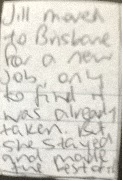 Jill moved
to Brisbane
for a new
job, only
to find it
was already
taken. But
she stayed
and made
the